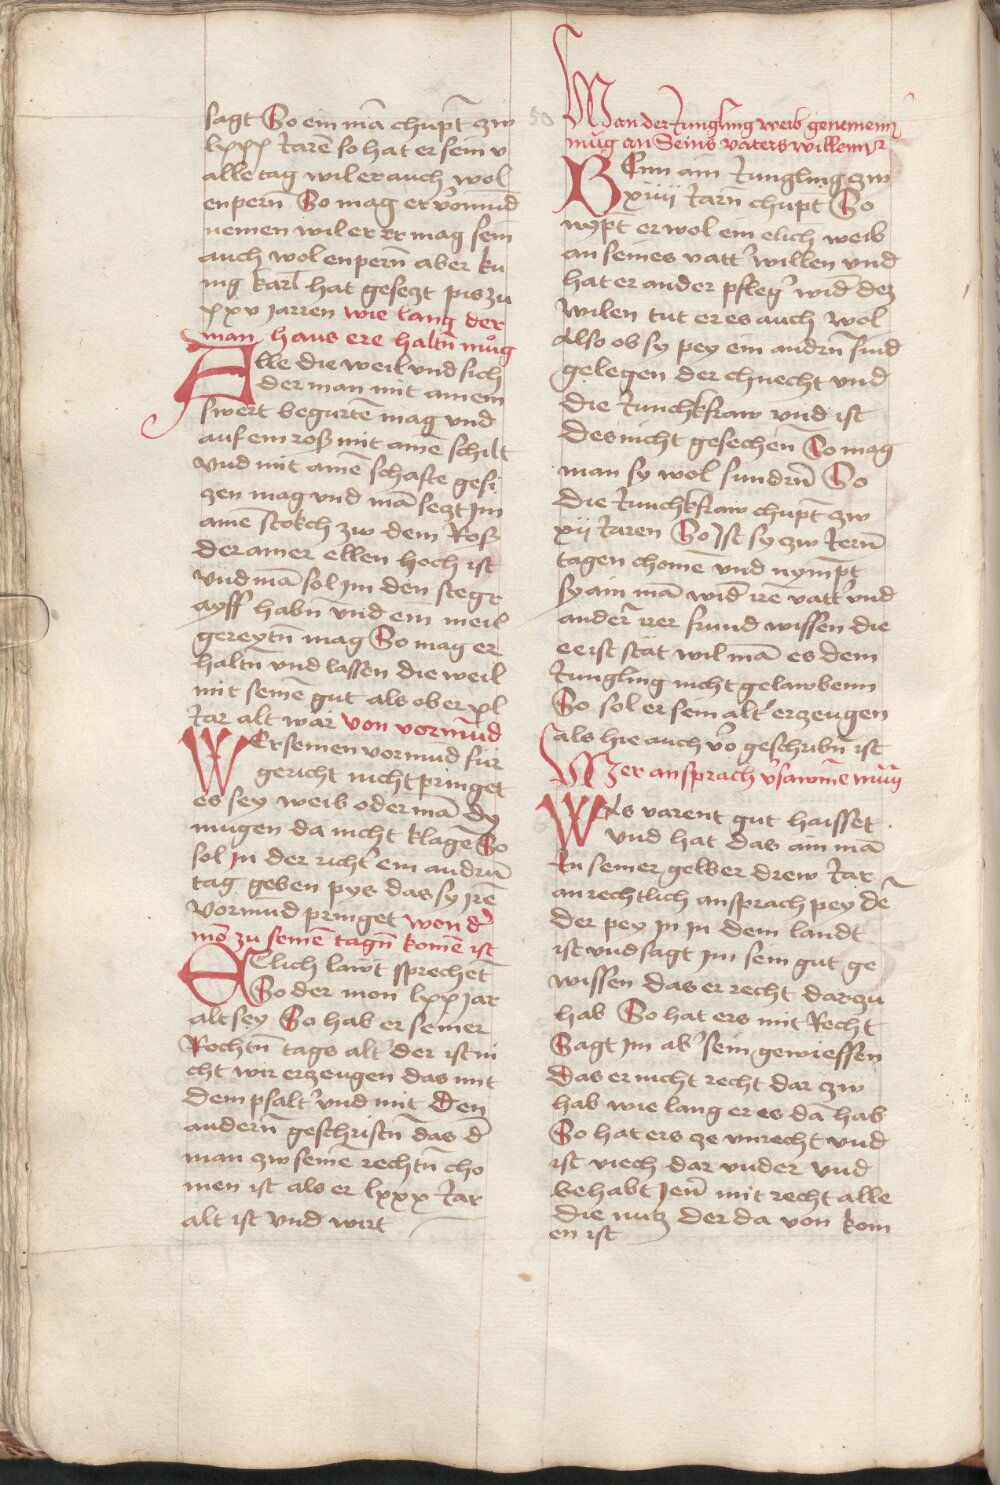 sagt So ein mā chupt zw
lxxx Jarē so hat er sein v
alle tag wil er auch wol
enpern̄ So mag er vormūd
nemen wil er er mag sein
auch wol enpern̄ aber ku
nig karl hat gesezt pis zu
xxv jarren wie lang der
man haus ere haltn̄ mug
Alle die weil vnd sich
der man mit ainem
swert begurtē mag vnd
auf ein roß mit ainē schilt
vnd mit ainē schafte gesi
zen mag vnd mā sezt im
ainē stokch zw dem Roß
der ainer ellen hoch ist
vnd mā sol im den stegr
ayff habn vnd ein meil
gereytn̄ mag So mag er
haltn̄ vnd lassen die weil
mit seinē gut als ob er xl
Jar alt war von vormūd
Wer seinen vormūd für
gericht nicht pringet
es sey weib oder mā dy
mugen da nicht klagē So
sol in der richt' ein andrn̄
tag geben pys das sy irē
vormūd pringet won d'
mō zu seinē tagn̄ komē ist
Etlich lawt sprechet
So der mon lxx jar
alt sey So hab er seiner
Rechtn̄ tags alt' der ist ni
cht wir erzeugen das mit
dem psalt' vnd mit den
andern̄ geschriftn̄ das d'
man zw seinē rechtn̄ cho
men ist als er lxxx Jar
alt ist vnd wirt
Wan der Jungling weib genemenn
mug an Seins vaters willenn
Wenn ain Jungling zw
xiiij Jarn̄ chupt So
nypt er wol ein elich weib
an seines vatt' willen vnd
hat er ander pfleg' wid' dez
willen tut er es auch wol
Also ob sy pey ein andrn̄ sind
gelegen der chnecht vnd
die Junchkfraw vnd ist
des nicht gesechen So mag
man sy wol sundrn̄ So
die Junchkfraw chupt zw
xij Jaren So Ist sy zw Jern̄
tagen chomē vnd nympt
sy ain mā wid' irē vatt' vnd
ander irer frund wissen die
ee ist stät wil mā es dem
Jungling nicht gelawbenn
So sol er sein alt' erzeugen
als hie auch vo geschribn̄ ist
Wer ansprach v'sawmē mug
Was varent gut haisset
vnd hat das ain mā
In seiner gelber drew Jar
an rechtlich ansprach pey dē
der pey jn jn dem landt
ist vnd sagt im sein gut ge
wissen das er recht dar zu
hab So hat ers mit Recht
Sagt im ab' sein gewiessen
Das er nicht recht dar zw
hab wie lang er es dā hab
So hat ers ze vnrecht vnd
ist viech dar vnder vnd
behabt Jen' mit recht alle
die nutz der da von kom
en ist